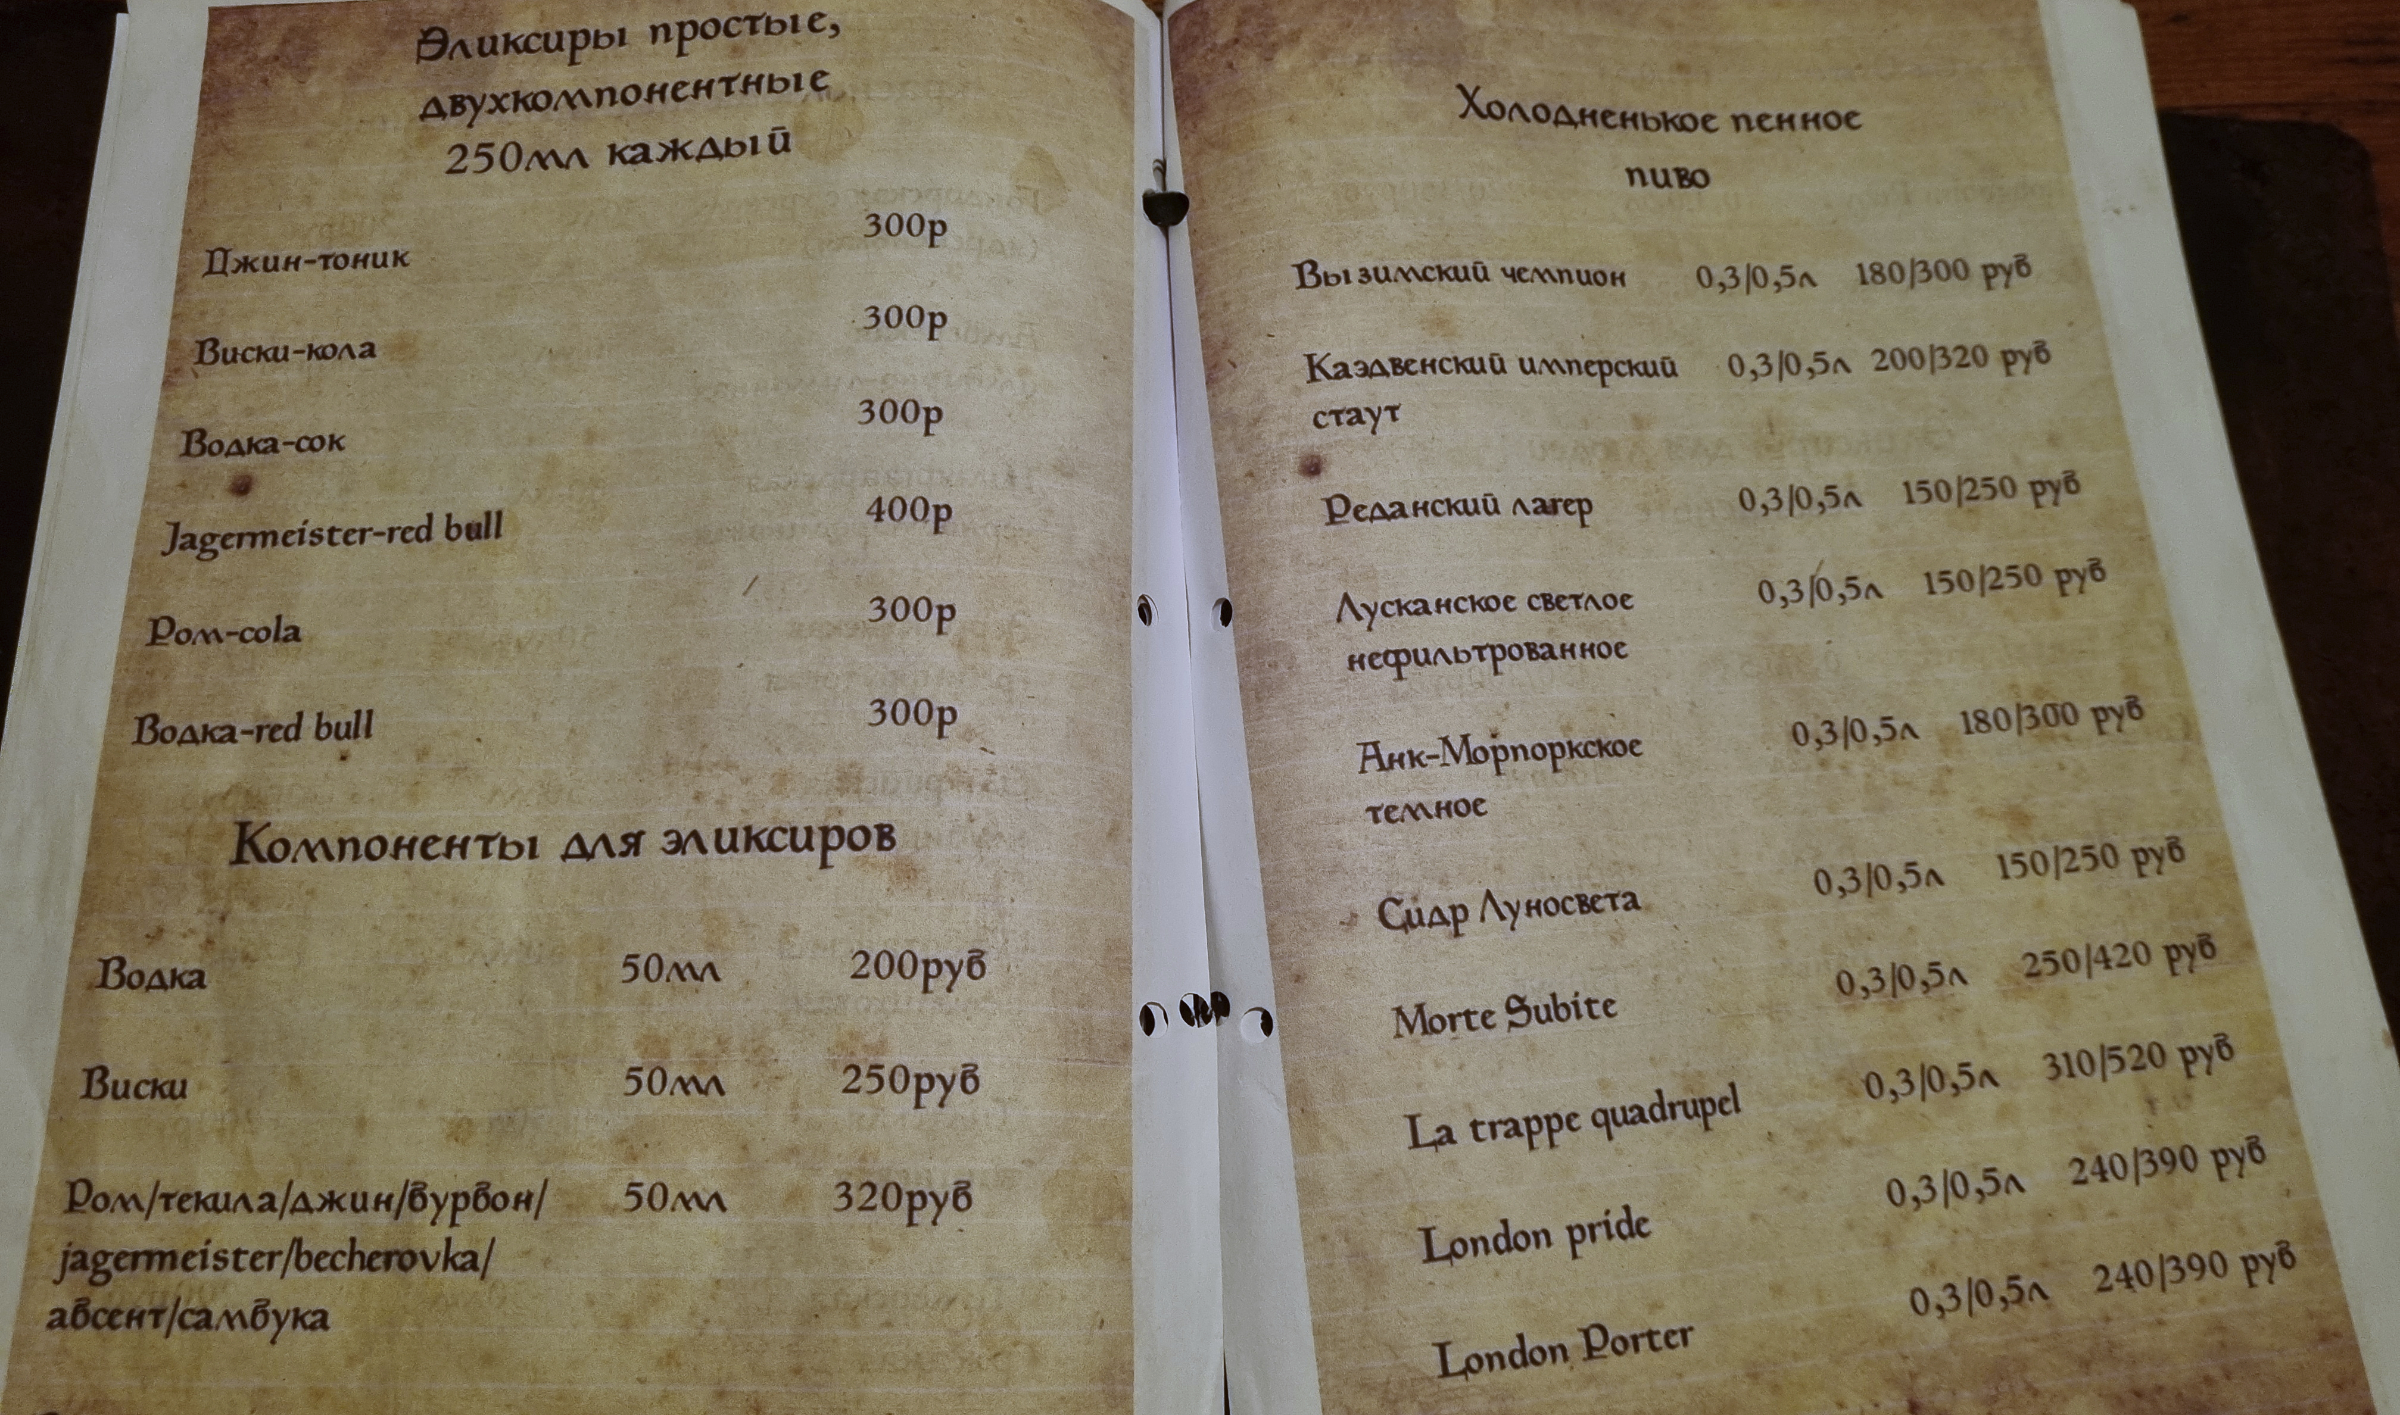 Эликсиры простые,
двухкомпонентные
250мл каждый
Джин-тоник 300р
Виски-кола 300р
Водка-сок 300р
Jagermeister-red bull 400р
Ром-cola 300р
Водка-red bull 300р
Компоненты для эликсиров
Водка 50мл 200руб
Виски 50мл 250руб
Ром/текила/джин/бурбон/ 50мл 320руб
jagermeister/becherovka/
абсент/самбука
Холодненькое пенное
пиво
Вызимский чемпион 0,3/0,5л 180/300 руб
Каэдвенский имперский 0,3/0,5л 200/320 руб
стаут
Реданский лагер 0,3/0,5л 150/250 руб
Лусканское светлое 0,3/0,5л 150/250 руб
нефильтрованное
Анк-Морпоркское 0,3/0,5л 180/300 руб
темное
Сидр Луносвета 0,3/0,5л 150/250 руб
Morte Subite 0,3/0,5л 250/420 руб
La trappe quadrupel 0,3/0,5л 310/520 руб
London pride 0,3/0,5л 240/390 руб
London Porter 0,3/0,5л 240/390 руб